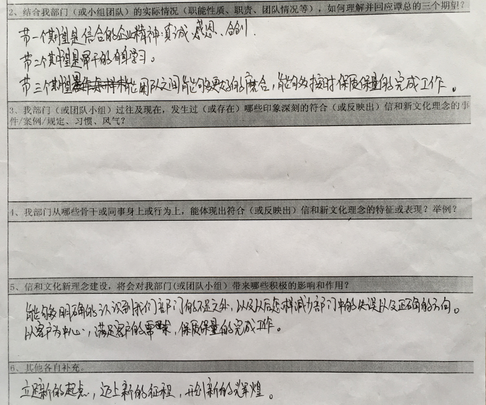 2、结合我部门（或小组团队）的实际情况（职能性质、职责、团队情况等），如何理解并回应谭总的三个期望？
第一个期望是信合的企业精神：真诚、感恩、合创
第二个期望是骨干的自身学习。
第三个期望是团队之间能够更好的磨合，能够为按时保质保量的完成工作。
3、我部门（或团队小组）过往及现在，发生过（或存在）哪些印象深刻的符合（或反映出）信和新文化理念的事
件/案例/规定、习惯、风气？
4、我部门从哪些骨干或同事身上或行为上，能体现出符合（或反映出）信和新文化理念的特征或表现？举例？
5、信和文化新理念建设，将会对我部门(或团队小组）带来哪些积极的影响和作用？
能够明确的认识到我们部门的不足之处，以及以后怎样减少部门中的失误以及正确的方向。
以客户为中心，满足客户的需求，保质保量的完成工作。
6、其他各自补充。
立足新的起点，迈上新的征程，开创新的辉煌。